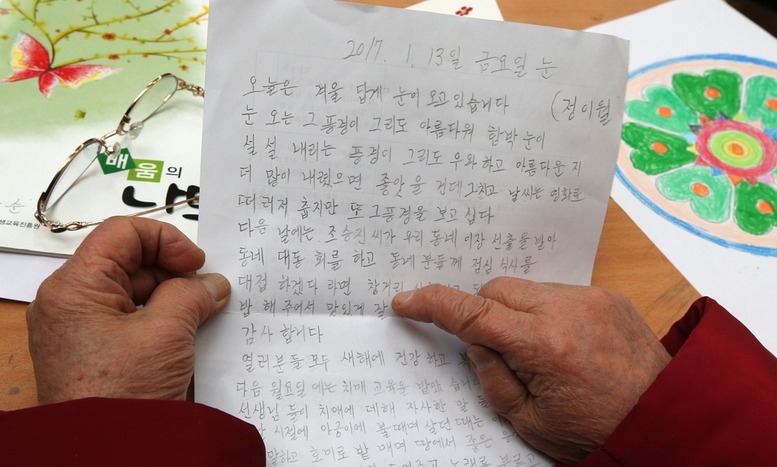 2017. 1. 13일 금요일 눈
오늘은 겨울 답게 눈이 오고 있습니다
(정이월
눈 오는 그 풍경이 그리도 아름다워 함박 눈이
설 설 내리는 풍경이 그리도 우와하고 아름다운지
더 많이 내렸으면 좋앗을 건데 그친고 날씨는 영화로
떠러져 춥지만 또 그풍경을 보고 십다
다음 날에는 조승진씨가 우리 동네 이장 선출을 받아
동네 대동 회를 하고 동네 분들께 점심 식사를
대접 하겠다 라면
밥 해 주어서 맛있게 잘
감사 합니다
열러분들 모두 새해에 건강 하고
다음 월요일 에는 치매 교육을 받았 습니다
선생님 들이 치애에 대해 자사한 말
시절에 아궁이에 불때며 살던 때는
말하고 호미로 밭 매며 땅에서 좋은
노래로 부르고
배움의